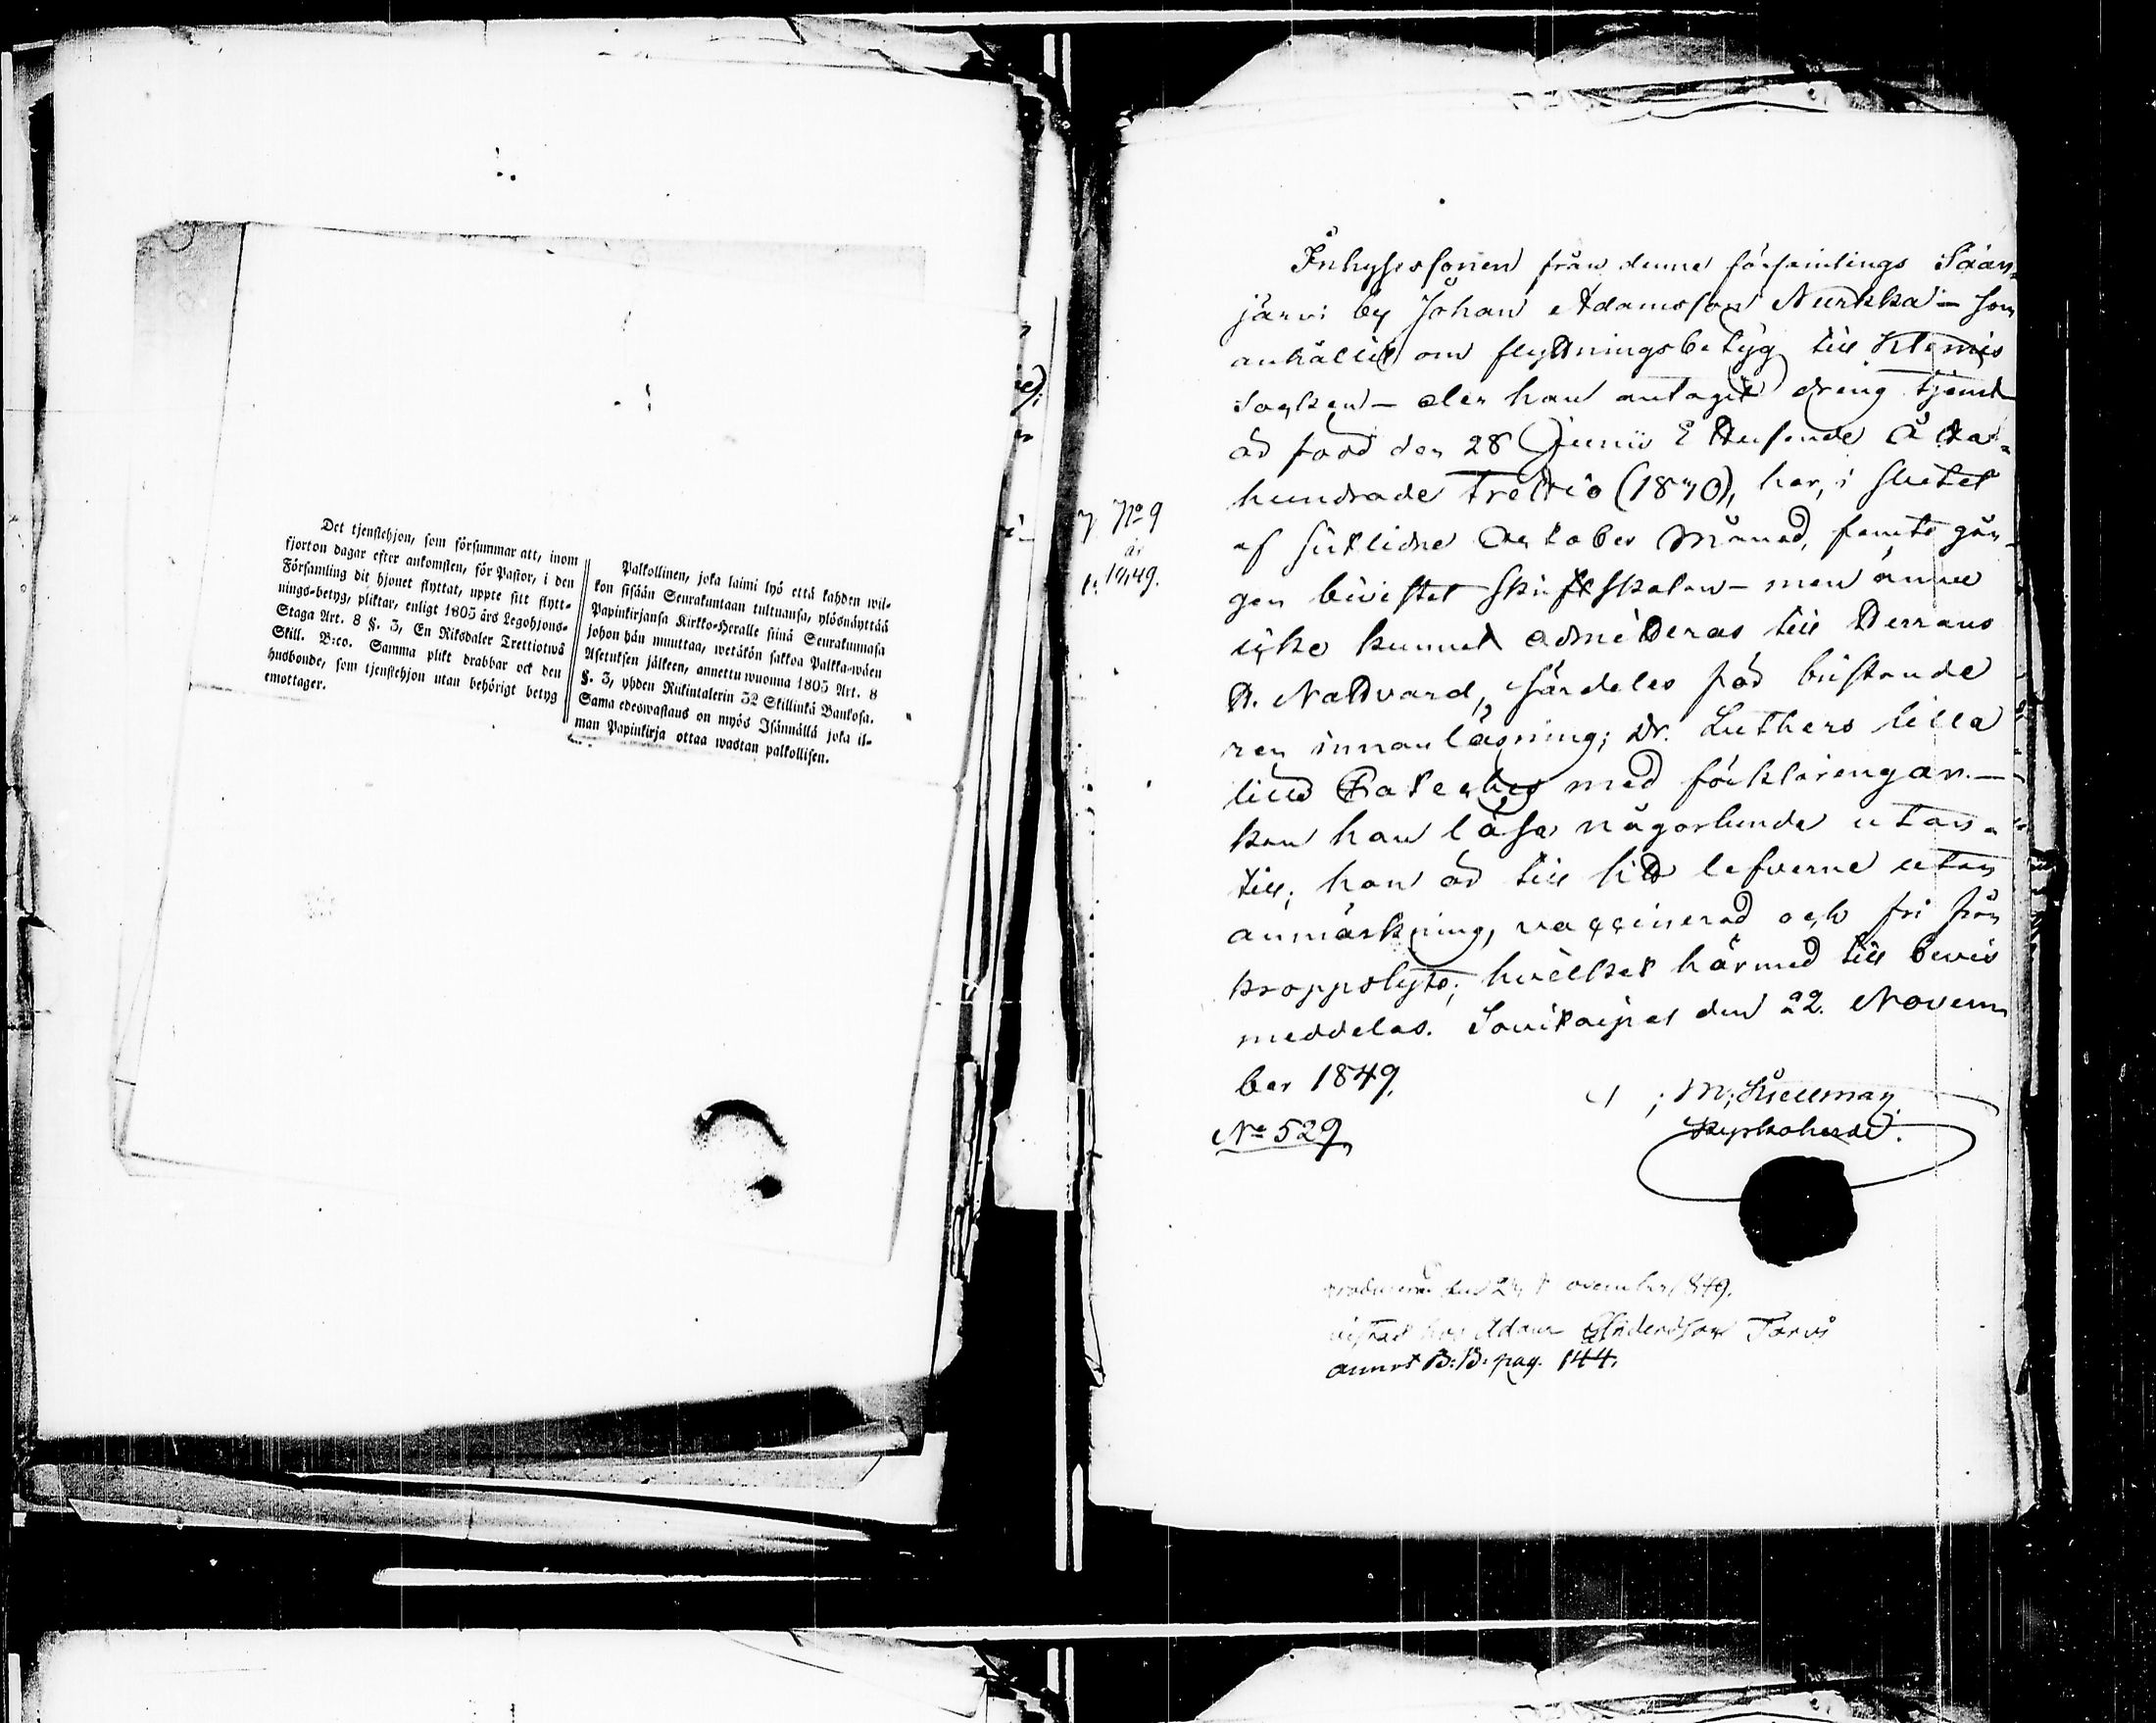 Det tjenstehjon, som försummar att, inom
fjorton dagar efter ankomsten, för Pastor, i den
Församling dit hjonet flyttat, uppte sitt flytt-
nings-betyg, pliktar, enligt 1805 års Legohjons-
Staga Art. 8 §. 3, En Riksdaler Trettiotwå
Skill. B:co. Samma plikt drabbar ock den
husbonde, som tjenstehjon utan behörigt betyg
emottager.
Palkollinen, joka laimi lyö että kahden wii-
kon sisään Seurakuntaan tultuansa, ylösnäyttää
Papinkirjansa Kirkko-Heralle siinä Seurakunnasa
johon hän muuttaa, wetäkön sakkoa Palkka-wäen
Asetuksen jälkeen, annettu wuonna 1805 Art. 8
§. 3, yhden Riikintalerin 32 Skillinkä Bankosa.
Sama edeswastaus on myös Isännällä joka il-
man Papinkirja ottaa wastan palkollisen.
Inhysessonen från denna församlings Sään-
järvi by Johan Adamsson Nurkka – som
anhållit om flyttningsbetyg till Klemis
socken – der han antagit dreng tjenst
är född den 28 Junii Ettusende Åtta-
hundrade Trettio (1830), har, i slutet
af sistlidne October Månad, femte gån-
gen bivistat Skriftskolan – men ännu
icke kunnat admitteras till Herrans
H. Nattvard, särdeles för bristande
ren innanläsning; Dr. Luthers lilla
lilla Cateches med förklaringar –
kan han läsa någorlunda utan-
till; han är till sitt lefverne utan
anmärkning, vaccinerad och fri från
kroppslyte; hvilket härmed till bevis
meddelas. Savitaipal den 22. Novem-
ber 1849.
M; Kiellman
Kyrkoherde.
No 529
No 9
år
1849.
producerad den November 1849.
Adam Järvi
annot B:B: pag. 144.